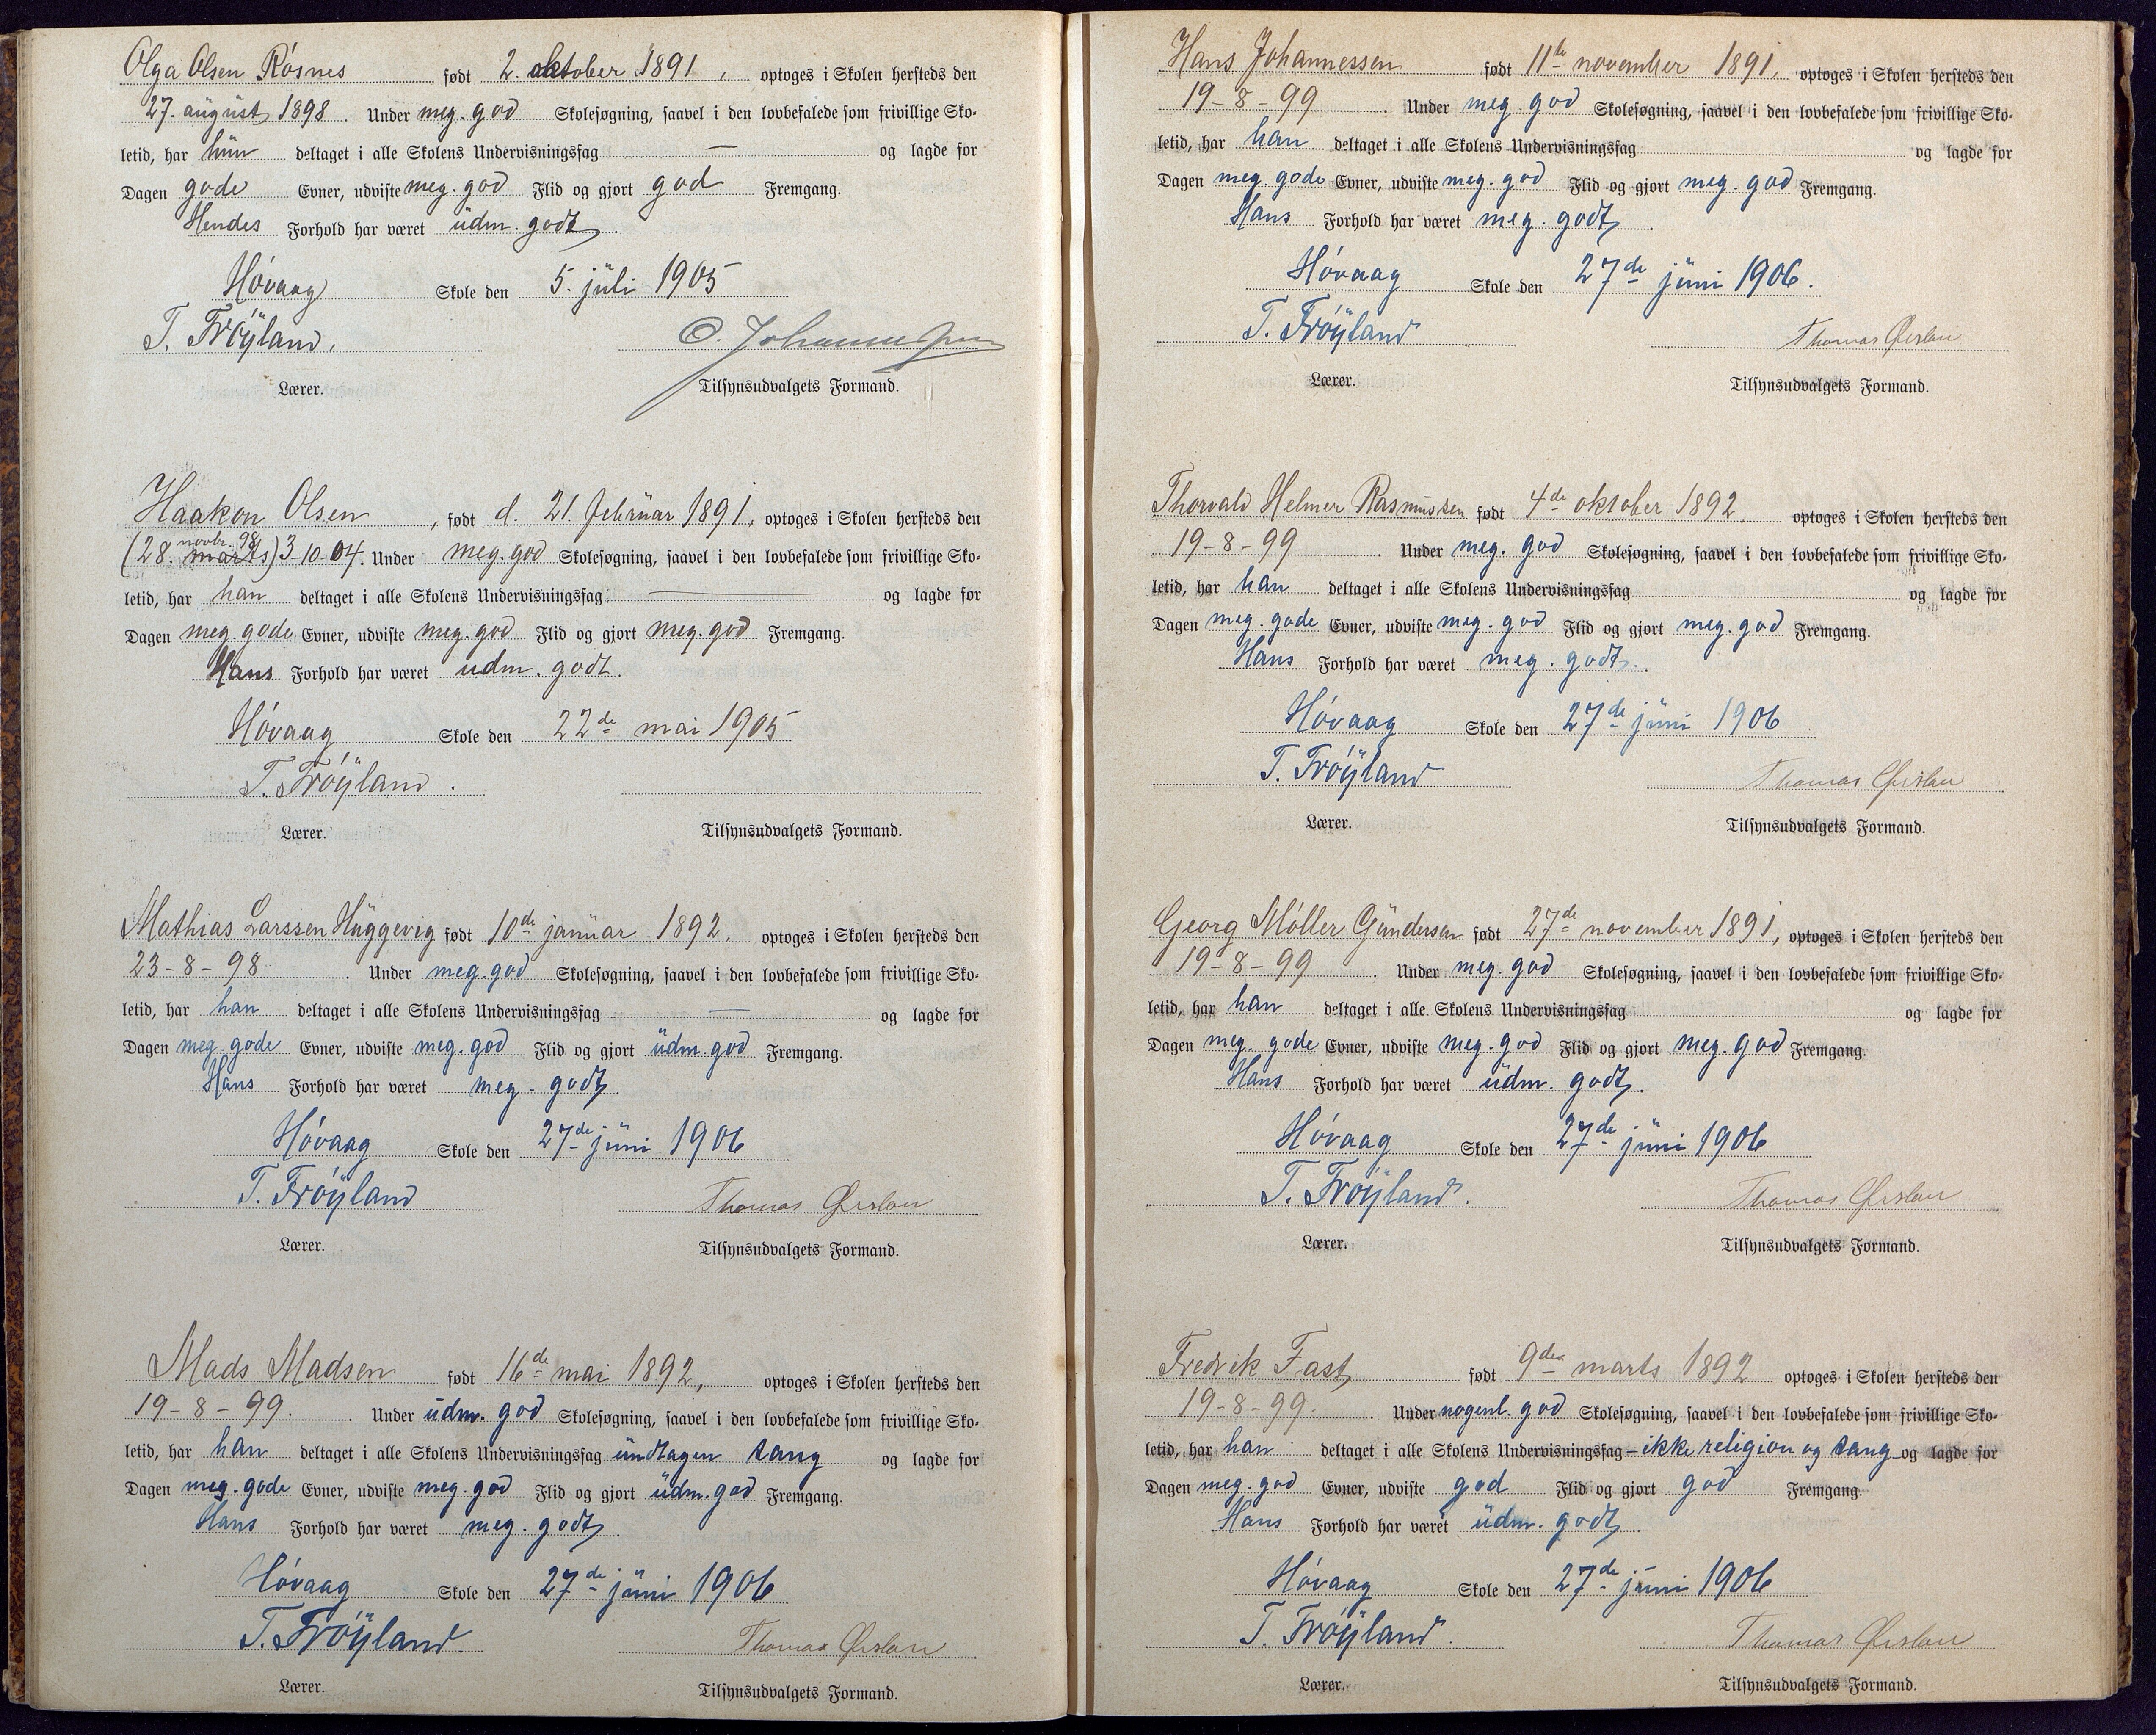 Olga Olsen Røsnes født 2. oktober 1891, optoges i Skolen hersteds den
27. august 1898. Under meg. god Skolesøgning, saavel i den lovbefalede som frivillige Sko-
letid, har hun deltaget i alle Skolens Undervisningsfag — og lagde for
Dagen gode Evner, udviste meg. god Flid og gjort god Fremgang.
Hendes Forhold har været udm. godt.
Høvaag Skole den 5. juli 1905
T. Frøyland. C. Johannessen
Lærer. Tilsynsudvalgets Formand.
Haakon Olsen, født d. 21. februar 1891, optoges i Skolen hersteds den
novbr. 98
(28. marts) 3-10-04. Under meg. god Skolesøgning, saavel i den lovbefalede som frivillige Sko-
letid, har han deltaget i alle Skolens Undervisningsfag — og lagde for
Dagen meg. gode Evner, udviste meg. god Flid og gjort meg. god Fremgang.
Hans Forhold har været udm. godt.
Høvaag Skole den 22de mai 1905
T. Frøyland.
Lærer. Tilsynsudvalgets Formand.
Mathias Larssen Huggevig født 10de januar 1892. optoges i Skolen hersteds den
23-8-98. Under meg. god Skolesøgning, saavel i den lovbefalede som frivillige Sko-
letid, har han deltaget i alle Skolens Undervisningsfag — og lagde for
Dagen meg. gode Evner, udviste meg. god Flid og gjort udm. god Fremgang.
Hans Forhold har været meg. godt.
Høvaag Skole den 27de juni 1906
T. Frøyland Thomas
Lærer. Tilsynsudvalgets Formand.
Mads Madsen født 16de mai 1892, optoges i Skolen hersteds den
19-8-99. Under udm. god Skolesøgning, saavel i den lovbefalede som frivillige Sko-
letid, har han deltaget i alle Skolens Undervisningsfag undtagen sang og lagde for
Dagen meg. gode Evner, udviste meg. god Flid og gjort udm. god Fremgang.
Hans Forhold har været meg. godt.
Høvaag Skole den 27de juni 1906
T. Frøyland. Thomas
Lærer. Tilsynsudvalgets Formand.
Hans Johannessen født 11te november 1891. optoges i Skolen hersteds den
19-8-99. Under meg. god Skolesøgning, saavel i den lovbefalede som frivillige Sko-
letid, har han deltaget i alle Skolens Undervisningsfag og lagde for
Dagen meg. gode Evner, udviste meg. god Flid og gjort meg. god Fremgang.
Hans Forhold har været meg. godt.
Høvaag Skole den 27de juni 1906.
T. Frøyland Thomas
Lærer. Tilsynsudvalgets Formand.
Thorvald Helmer Rasmussen født 4de oktober 1892. optoges i Skolen hersteds den
19-8-99. Under meg. god Skolesøgning, saavel i den lovbefalede som frivillige Sko-
letid, har han deltaget i alle Skolens Undervisningsfag og lagde for
Dagen meg. gode Evner, udviste meg. god Flid og gjort meg. god Fremgang.
Hans Forhold har været meg. godt.
Høvaag Skole den 27de juni 1906
T. Frøyland Thomas
Lærer. Tilsynsudvalgets Formand.
Georg Møller Gundersen født 27de november 1891, optoges i Skolen hersteds den
19-8-99. Under meg. god Skolesøgning, saavel i den lovbefalede som frivillige Sko-
letid, har han deltaget i alle Skolens Undervisningsfag og lagde for
Dagen meg. gode Evner, udviste meg. god Flid og gjort meg. god Fremgang.
Hans Forhold har været udm. godt.
Høvaag Skole den 27de juni 1906
T. Frøyland. Thomas
Lærer. Tilsynsudvalgets Formand.
Fredrik Fast født 9de marts 1892 optoges i Skolen hersteds den
19-8-99. Under nogenl. god Skolesøgning, saavel i den lovbefalede som frivillige Sko-
letid, har han deltaget i alle Skolens Undervisningsfag – ikke religion og sang og lagde for
Dagen meg. god Evner, udviste god Flid og gjort god Fremgang.
Hans Forhold har været udm. godt.
Høvaag Skole den 27de juni 1906
T. Frøyland. Thomas
Lærer. Tilsynsudvalgets Formand.